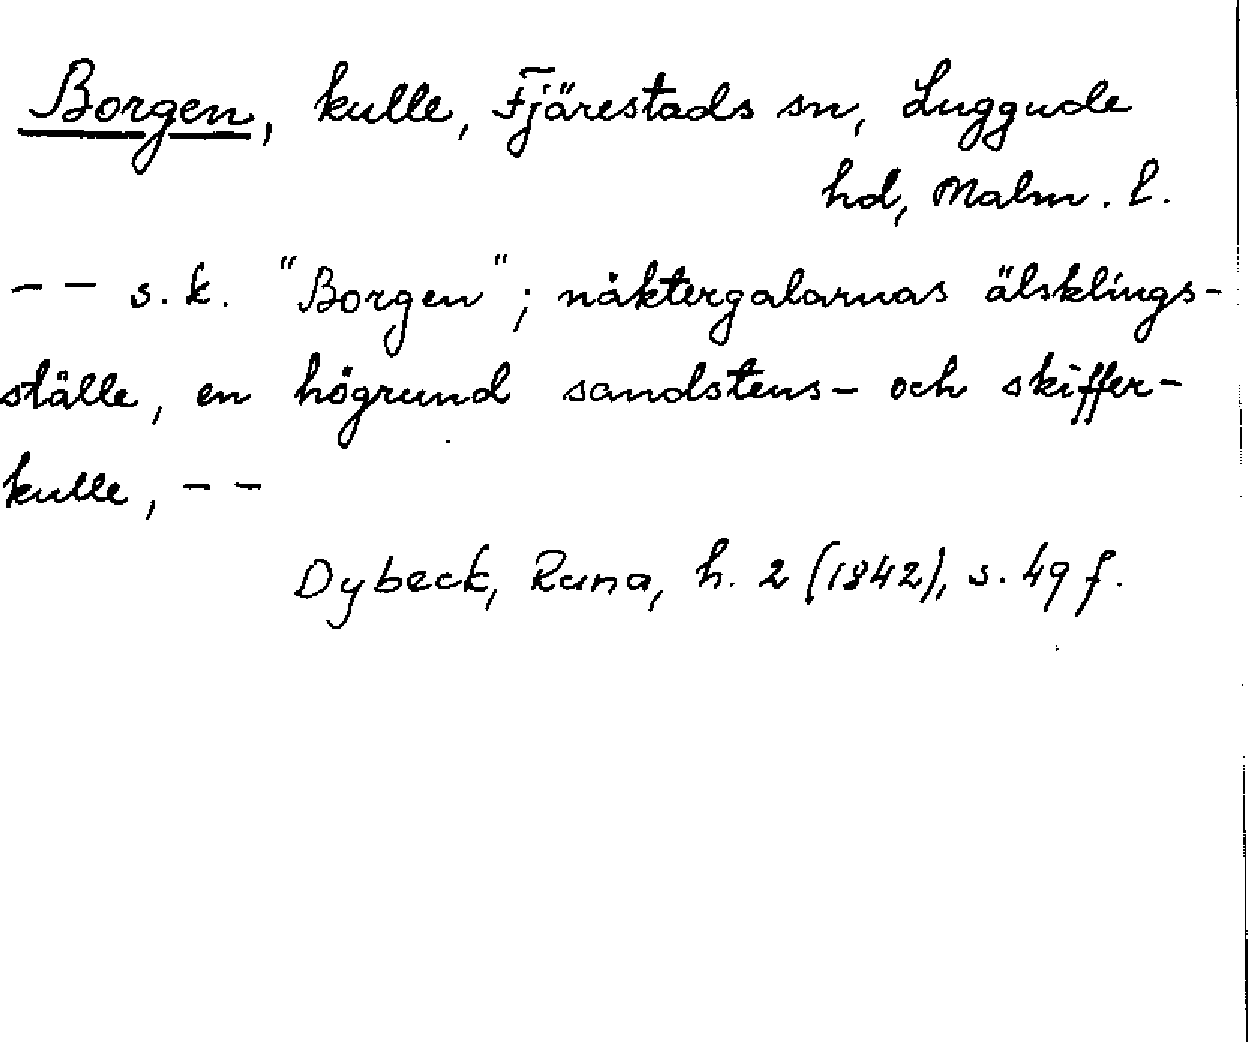 Borgen, kulle, Fjärestads sn, Luggude
hd, Malm. l.
-- s.k. "Borgen"; näktergalarnas älsklings-
ställe, en högrund sandstens- och skiffer-
kulle, --
Dybeck, Runa, h. 2 (1842), s. 49 f.